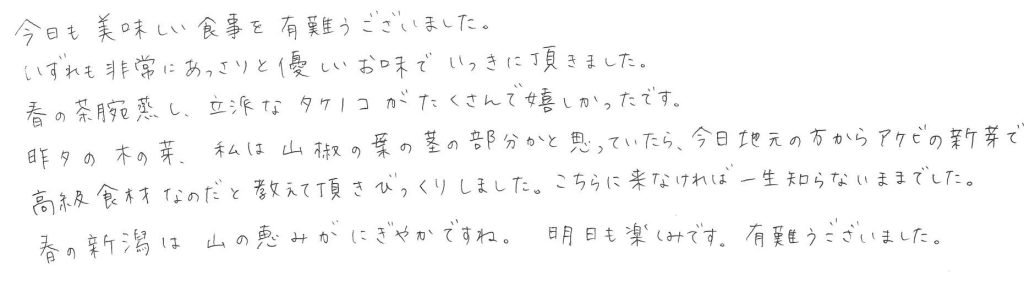 今日も美味しい食事を有難うございました。
いずれも非常にあっさりと優しいお味でいっきに頂きました。
春の茶腕蒸し、立派なタケノコがたくさんで嬉しかったです。
昨夕の木の芽、私は山椒の葉の茎の部分かと思っていたら、今日地元の方からアケビの新芽で
高級食材なのだと教えて頂きびっくりしました。こちらに来なければ一生知らないままでした。
春の新潟は山の恵みがにぎやかですね。 明日も楽しみです。有難うございました。